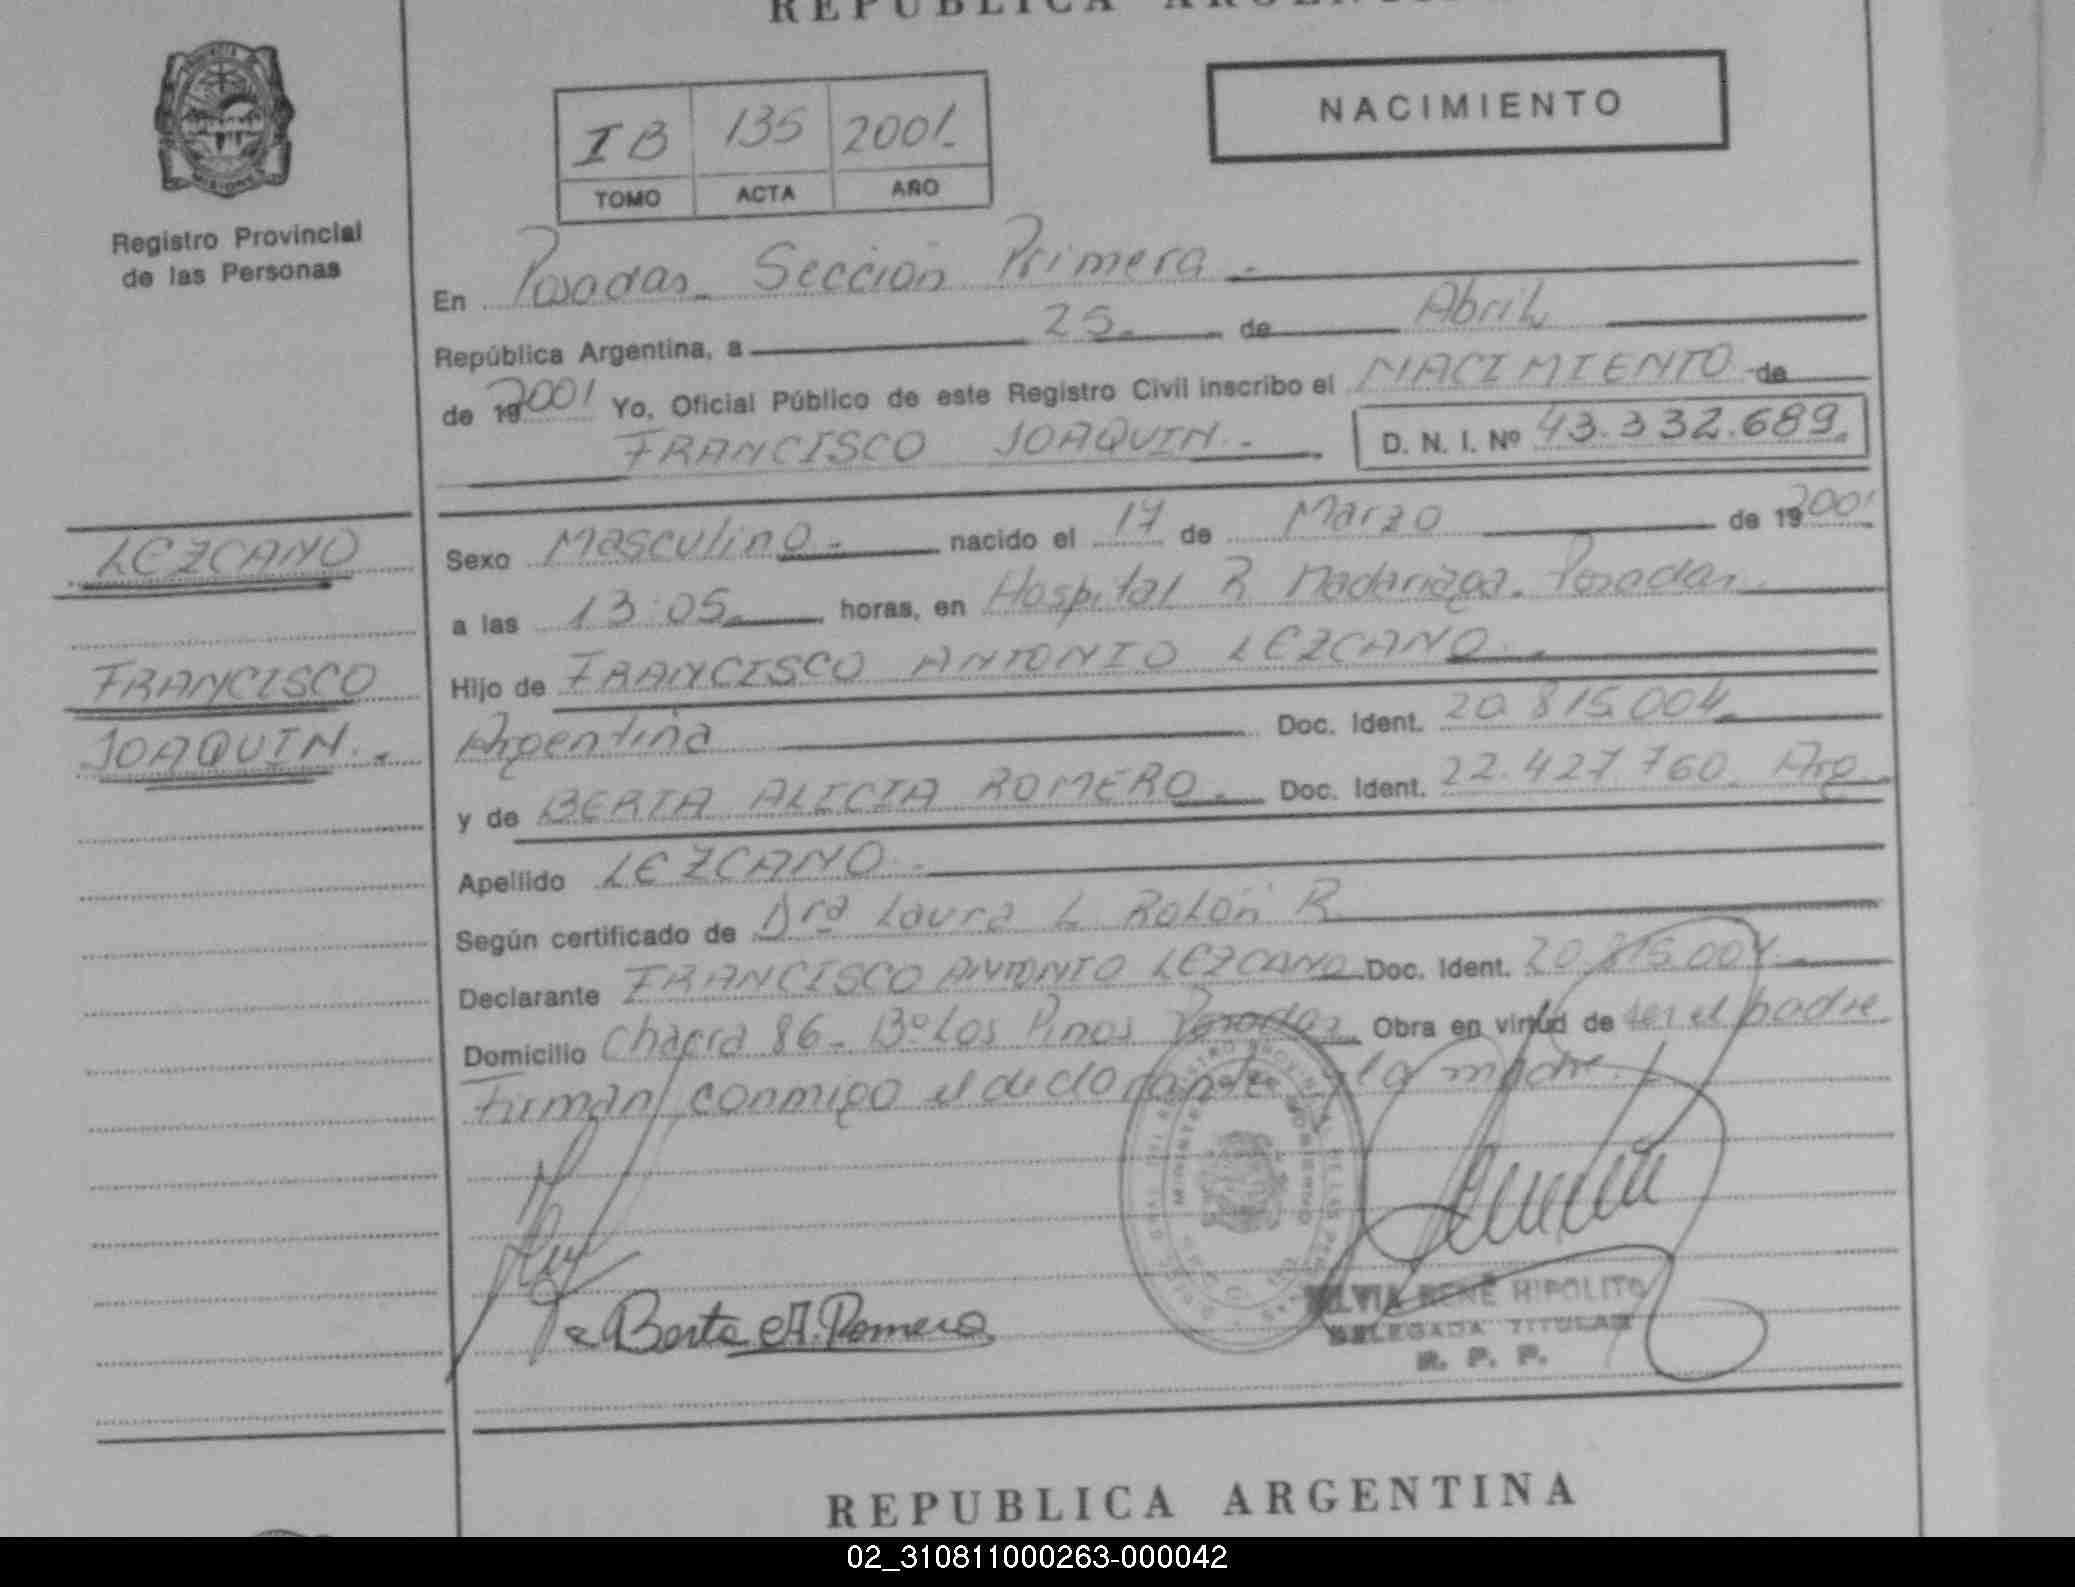 REPUBLICA ARGENTINA
NACIMIENTO
IB 135 2001.
TOMO ACTA AÑO
Registro Provincial
de las Personas
En Posadas Sección Primera.
República Argentina, a 25 de Abril
de 19 2001 Yo, Oficial Público de este Registro Civil inscribo el NACIMIENTO de
FRANCISCO JOAQUIN. D. N. I. Nº 43.332.689.
LEZCANO
FRANCISCO
JOAQUIN.
Sexo Masculino. nacido el 17 de Marzo de 19 2001
a las 13:05 horas, en Hospital R Madariaga. Posadas
Hijo de FRANCISCO ANTONIO LEZCANO.
Argentina Doc. Ident. 20.815.004
y de BERTA ALICIA ROMERO. Doc. Ident. 22.427.760. Arg
Apellido LEZCANO.
Según certificado de Dra Laura L Rolón R
Declarante FRANCISCO ANTONIO LEZCANO Doc. Ident. 20.815.004.
Domicilio Chacra 86. Bº Los Pinos Posadas Obra en virtud de ser el padre
Firman conmigo el declarante y la madre.
Berta A. Romero
SILVIA RENÉ HIPOLITO
DELEGADA TITULAR
R. P. P.
REPUBLICA ARGENTINA
02_310811000263-000042